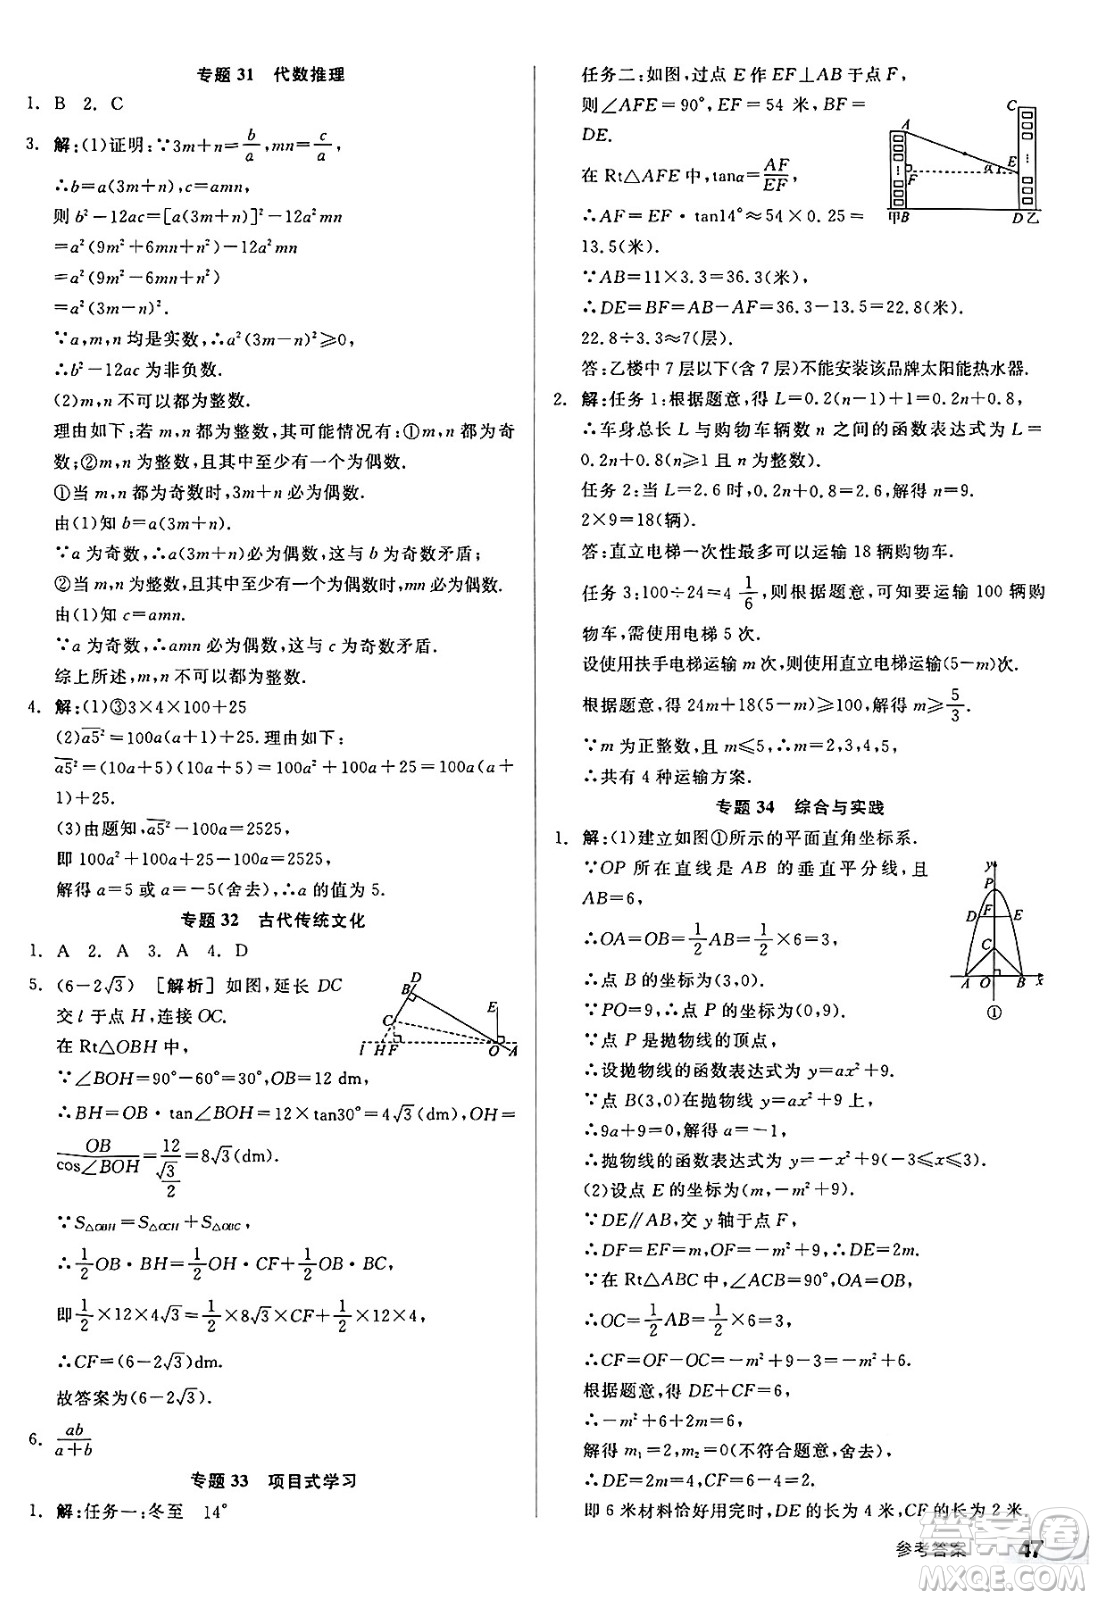 专题 31 代数推理
1. B 2. C
3. 解:(1)证明:∵3m+n=b/a,mn=c/a,
∴b=a(3m+n),c=amn,
则 b²-12ac=[a(3m+n)]²-12a²mn
=a²(9m²+6mn+n²)-12a²mn
=a²(9m²-6mn+n²)
=a²(3m-n)².
∵a,m,n 均是实数,∴a²(3m-n)²⩾0,
∴b²-12ac 为非负数.
(2)m,n 不可以都为整数.
理由如下;若 m,n 都为整数,其可能情况有:①m,n 都为奇
数;②m,n 为整数,且其中至少有一个为偶数.
①当 m,n 都为奇数时,3m+n 必为偶数.
由(1)知 b=a(3m+n).
∵a 为奇数,∴a(3m+n)必为偶数,这与 b 为奇数矛盾;
②当 m,n 为整数,且其中至少有一个为偶数时,mn 必为偶数.
由(1)知 c=amn.
∵a 为奇数,∴amn 必为偶数,这与 c 为奇数矛盾.
综上所述,m,n 不可以都为整数.
4. 解:(1)③3×4×100+25
(2)a5²=100a(a+1)+25.理由如下:
a5²=(10a+5)(10a+5)=100a²+100a+25=100a(a+
1)+25.
(3)由题知,a5²-100a=2525,
即 100a²+100a+25-100a=2525,
解得 a=5 或 a=-5(舍去),∴a 的值为 5.
专题 32 古代传统文化
1. A 2. A 3. A 4. D
5. (6-2√3) [解析] 如图,延长 DC
交 l 于点 H,连接 OC.
在 Rt△OBH 中,
∵∠BOH=90°-60°=30°,OB=12 dm,
∴BH=OB·tan∠BOH=12×tan30°=4√3(dm),OH=
OB/cos∠BOH=12/(√3/2)=8√3(dm).
∵S△OBH=S△OCH+S△OBC,
∴1/2OB·BH=1/2OH·CF+1/2OB·BC,
即1/2×12×4√3=1/2×8√3×CF+1/2×12×4,
∴CF=(6-2√3)dm.
故答案为(6-2√3).
6. ab/(a+b)
专题 33 项目式学习
1. 解:任务一:冬至 14°
D
B
C
E
l
H
F
O
A
任务二:如图,过点 E 作 EF⊥AB于点 F,
则∠AFE=90°,EF=54 米,BF=
DE.
在 Rt△AFE 中,tanα=AF/EF,
∴AF=EF·tan14°≈54×0.25=
13.5(米).
∵AB=11×3.3=36.3(米),
∴DE=BF=AB-AF=36.3-13.5=22.8(米).
22.8÷3.3≈7(层).
答:乙楼中 7 层以下(含 7 层)不能安装该品牌太阳能热水器.
C
A
E
α
F
甲B
D乙
2. 解:任务 1:根据题意,得 L=0.2(n-1)+1=0.2n+0.8,
∴车身总长 L 与购物车辆数 n 之间的函数表达式为 L=
0.2n+0.8(n⩾1 且 n 为整数).
任务 2:当 L=2.6 时,0.2n+0.8=2.6,解得 n=9.
2×9=18(辆).
答:直立电梯一次性最多可以运输 18 辆购物车.
任务 3:100÷24=4 1/6,根据题意,可设运输 100 辆购
物车,需使用电梯 5 次.
设使用扶手电梯运输 m 次,则使用直立电梯运输(5-m)次.
根据题意,得 24m+18(5-m)⩾100,解得 m⩾5/3.
∵m 为正整数,且 m⩽5,∴m=2,3,4,5,
∴共有 4 种运输方案.
专题 34 综合与实践
1. 解:(1)建立如图①所示的平面直角坐标系.
∵OP 所在直线是 AB 的垂直平分线,且
AB=6,
∴OA=OB=1/2AB=1/2×6=3,
∴点 B 的坐标为(3,0).
∵PO=9,∴点 P 的坐标为(0,9).
∵点 P 是抛物线的顶点,
∴设抛物线的函数表达式为 y=ax²+9.
∵点 B(3,0)在抛物线 y=ax²+9 上,
∴9a+9=0,解得 a=-1,
∴抛物线的函数表达式为 y=-x²+9(-3⩽x⩽3).
(2)设点 E 的坐标为(m,-m²+9).
∵DE∥AB,交 y 轴于点 F,
∴DF=EF=m,OF=-m²+9,∴DE=2m.
∵在 Rt△ABC 中,∠ACB=90°,OA=OB,
∴OC=1/2AB=1/2×6=3,
∴CF=OF-OC=-m²+9-3=-m²+6.
根据题意,得 DE+CF=6,
∴-m²+6+2m=6,
解得 m₁=2,m₂=0(不符合题意,舍去),
∴DE=2m=4,CF=-m²+6=2.
即 6 米材料恰好用完时,DE 的长为 4 米,CF 的长为 2 米.
y
P
D
F
E
C
A
O
B
x
①
参考答案
47
答案圈
MXQE.COM